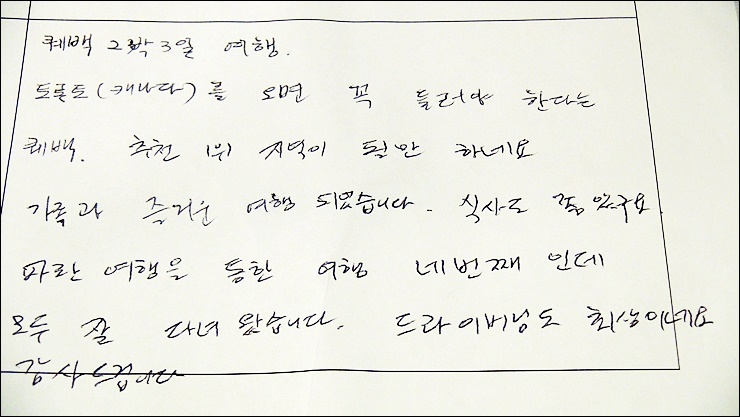 퀘백 2박3일 여행.
토론토(캐나다)를 오면 꼭 들러야 한다는
퀘백. 추천 1위 지역이 될만 하네요
가족과 즐거운 여행 되었습니다. 식사도 좋았구요.
파란여행을 통한 여행 네번째 인데
모두 잘 다녀 왔습니다. 드라이버님도 최상이네요
감사드립니다